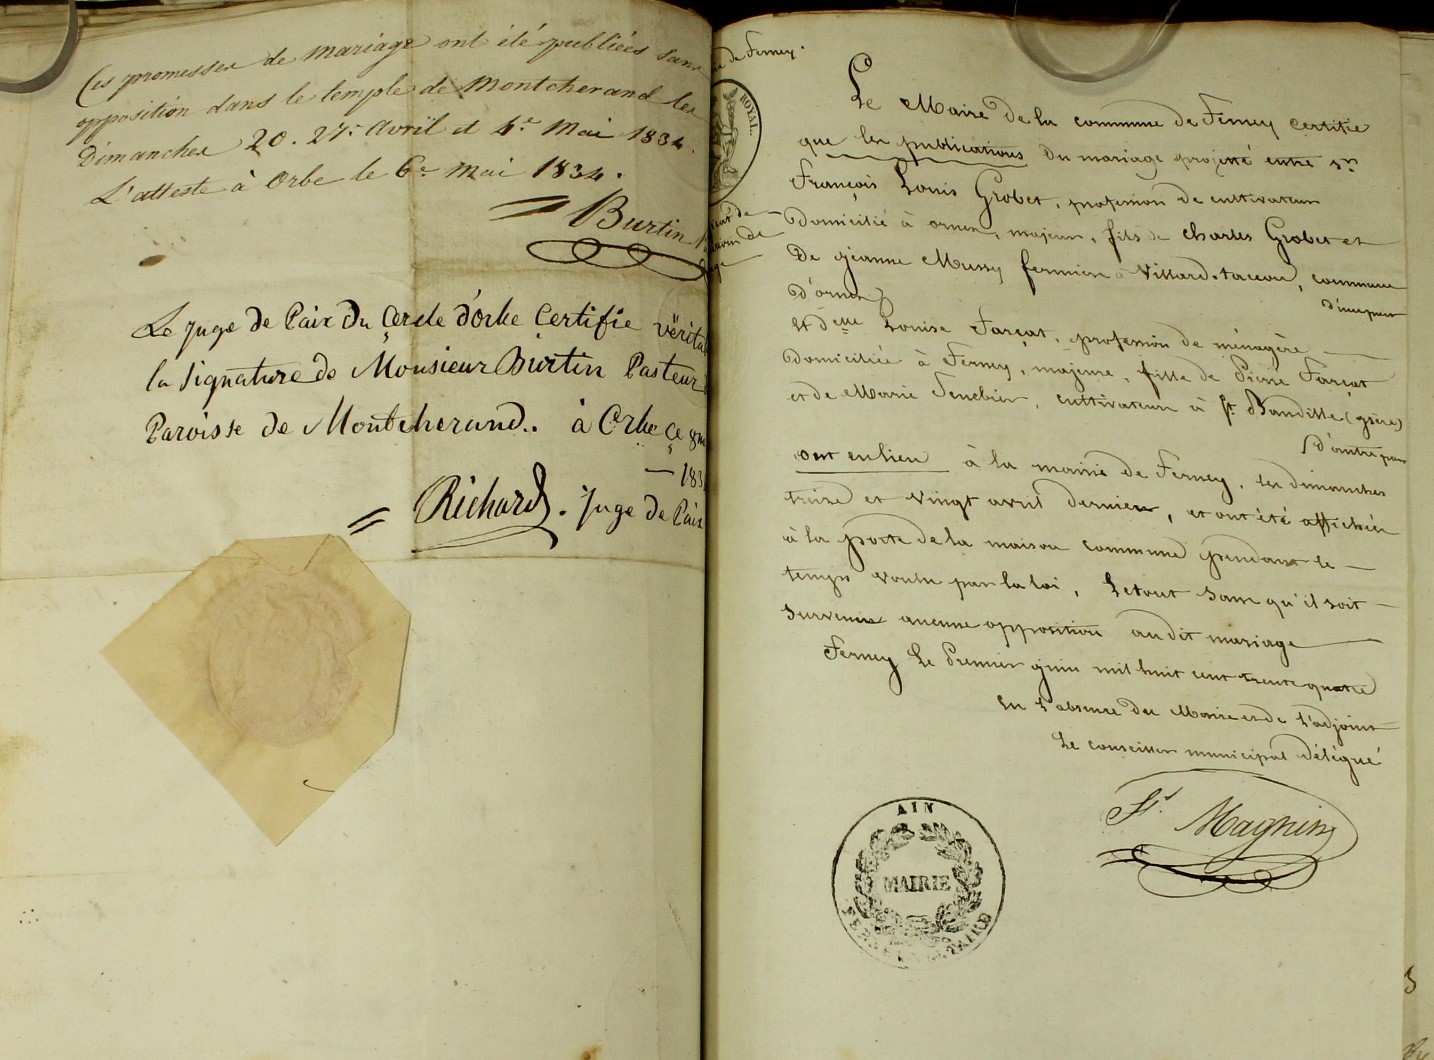 Ces promesses de mariage ont été publiées sans
opposition dans le temple de Montcherand les
Dimanches 20. 27. Avril et 4e. Mai 1834.
L'atteste à Orbe le 6e. Mai 1834.
Burtin
Le Juge de Paix Du Cercle d'Orbe Certifie vérita
la Signature de Monsieur Burtin Pasteur
Paroisse de Montcherand. à Orbe ce 8me
— 183
Richard. Juge de Paix
de Ferney.
ROYAL.
Le Maire de la commune de Ferney certifie
que les publications du mariage projetté entre Sr.
François Louis Grobet, profession de cultivateur
domicilié à ornex, majeur, fils de Charles Grobet et
De jeanne Mussy fermiers à Villard-tacon, commune
d'ornex
d'une part
et delle Louise Farçat, profession de ménagère
domiciliée à Ferney, majeure, fille de Pierre Farçat
et de Marie Senebier, cultivateurs à St. Baudille (isère)
d'autre part
ont eu lieu à la mairie de Ferney, les dimanches
treize et vingt avril dernier, et ont été affichées
à la porte de la maison commune pendant le
temps voulu par la loi, Le tout sans qu'il soit
survenu aucune opposition audit mariage
Ferney Le Premier juin mil huit cent trente quatre
en l'absence du Maire et de l'adjoint
Le conseiller municipal délégué
Fs. Magnin
AIN
MAIRIE
FERNEY VOLTAIRE